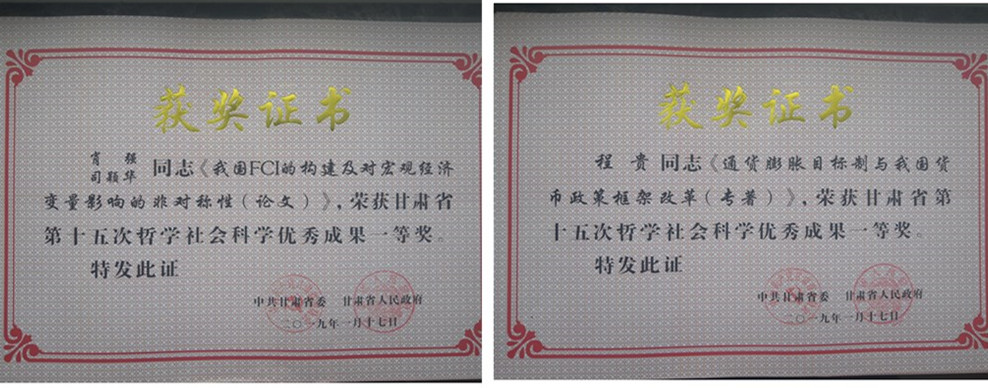 获奖证书
肖强
司颖华 同志《我国FCI的构建及对宏观经济
变量影响的非对称性（论文）》，荣获甘肃省
第十五次哲学社会科学优秀成果一等奖。
特发此证
中共甘肃省委 甘肃省人民政府
二〇一九年一月十七日
获奖证书
程贵同志《通货膨胀目标制与我国货
币政策框架改革（专著）》，荣获甘肃省第
十五次哲学社会科学优秀成果一等奖。
特发此证
中共甘肃省委 甘肃省人民政府
二〇一九年一月十七日